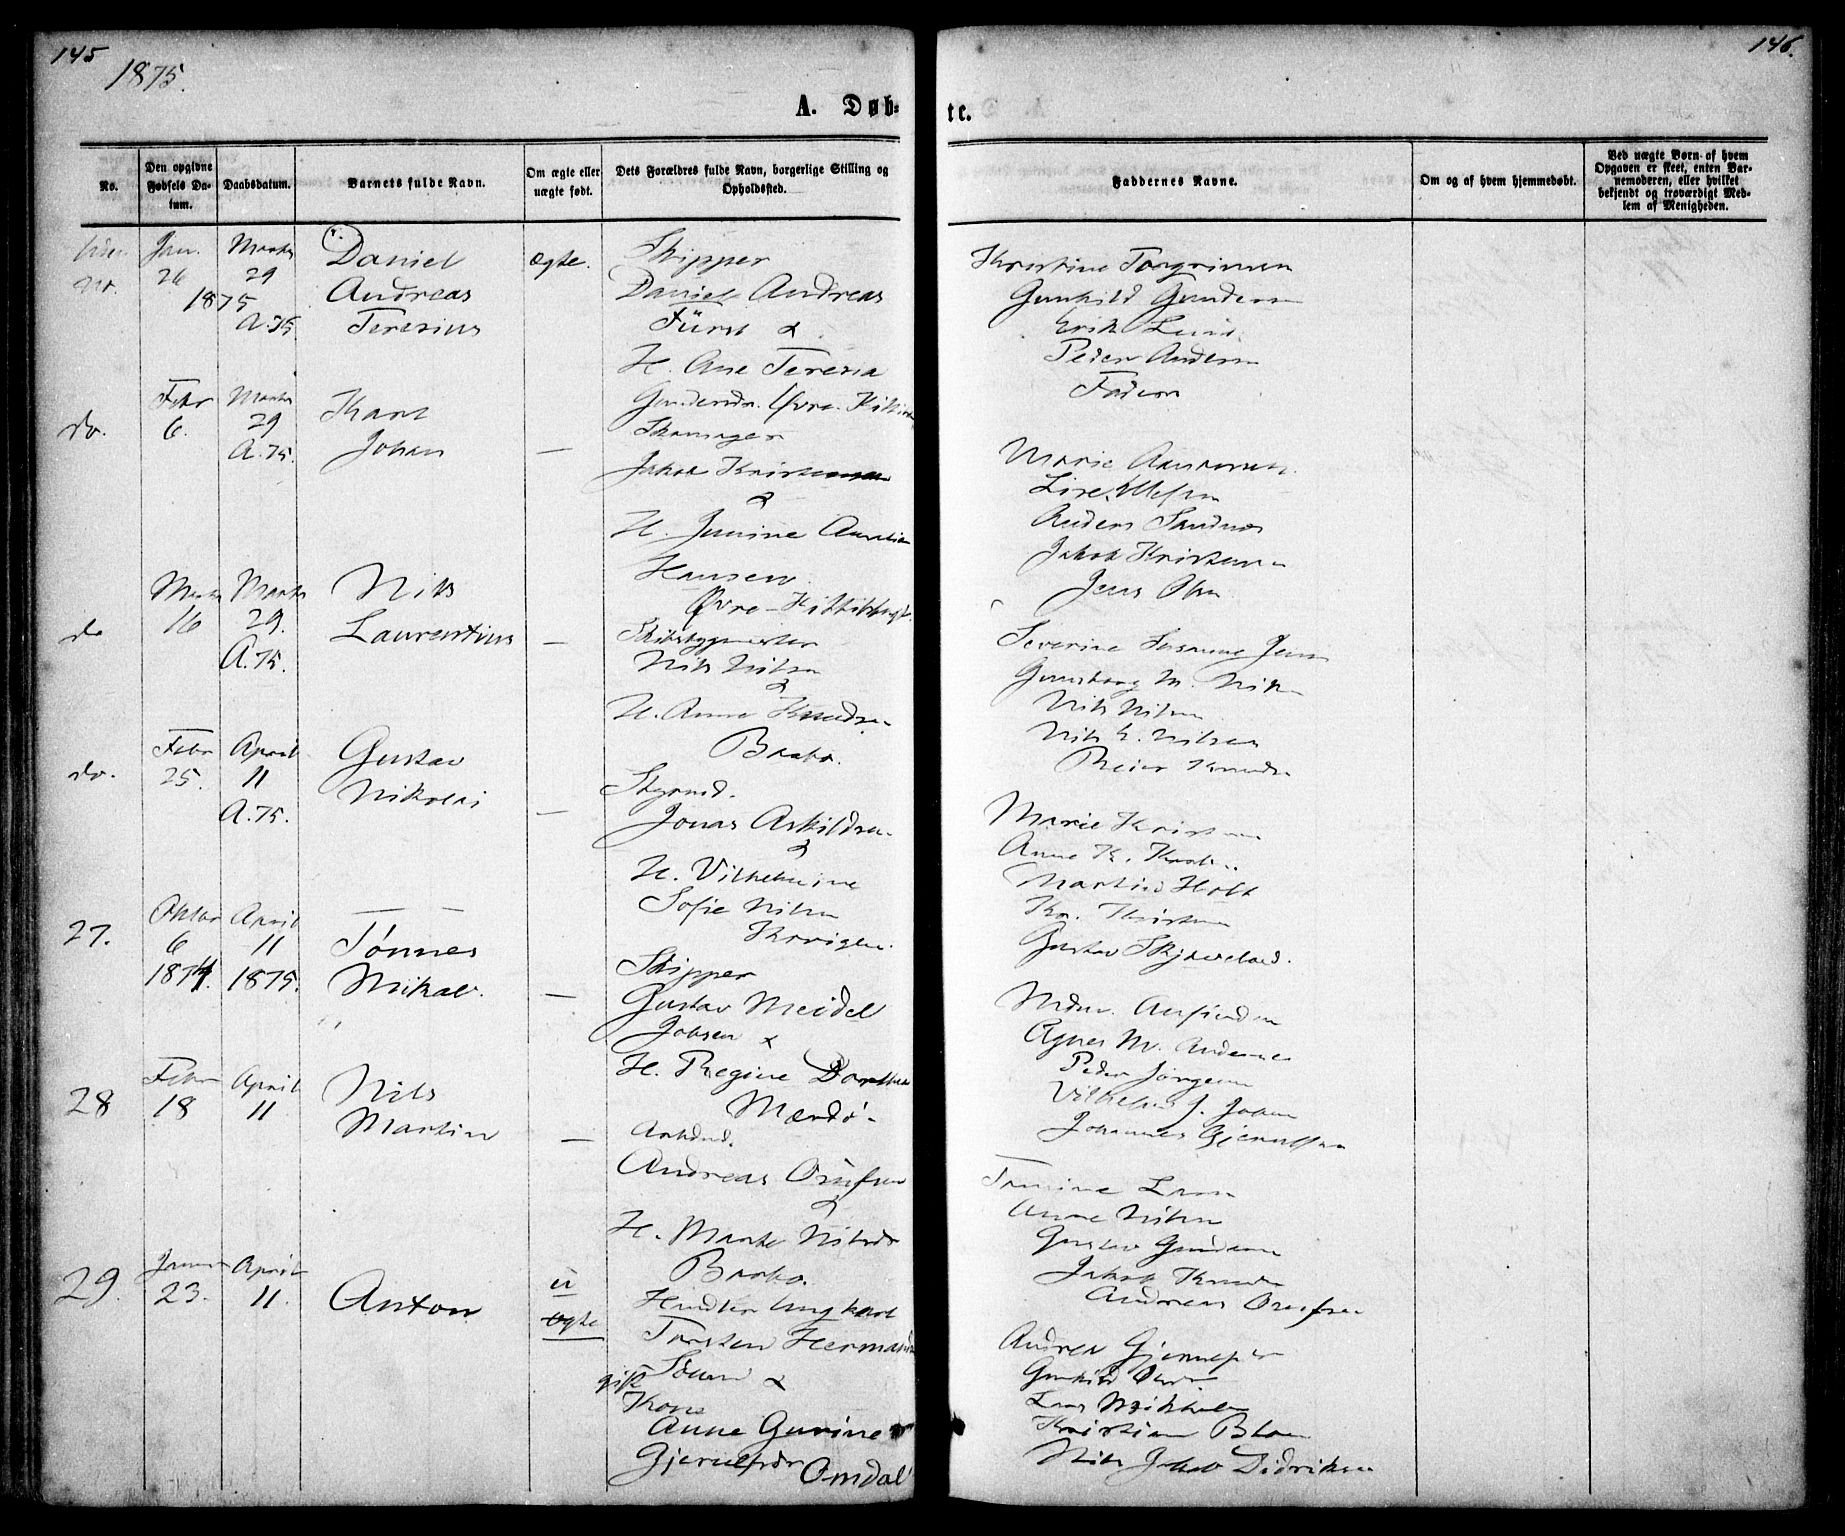 145
1875.
A. Døb-
No.
Den opgivne Fødsels Datum.
Daabsdatum.
Barnets fulde Navn.
Om ægte eller uægte født.
Dets Forældres fulde Navn, borgerlige Stilling og Opholdsted.
Jan. 26
1875
Marts 29
A. 75
Daniel
Andreas
Teresius
ægte.
Skipper
Daniel Andreas
Fürst &
H. Ane Teresia
Gundersdr. Øvre
do.
Febr 6.
Marts 29
A. 75.
Karl
Johan
—
Skomager
Jakob Kristensen
&
H. Jensine Aurelia
Hansen
Øvre-
do
Marts 16
Marts 29.
A. 75.
Nils
Laurentius
—
Skibsbygmester
Nils Nilsen
&
H. Anne Knudsen
Barbo.
do.
Febr 25.
April 11
A. 75.
Gustav
Nikolai
—
Styrmd.
Jonas Askildsen
&
H. Vilhelmine
Sofie Nilsen
27.
Oktbr 6
1874.
April 11
1875.
Tønnes
Mikal.
—
Skipper
Gustav Meidel
Jobsen &
H. Regine Dorthea
Mærdø-
28
Febr 18
April 11
Nils
Martin
—
Arbdmd.
Andreas
&
H. Marte Nilsdr
Barbo.
29.
Januar 23.
April 11.
Anton
u
ægte
Ungkarl
Torsten Herman
gift
Kone
Anne Gurine
Gjerulfsdr Omdal
146.
te.
Faddernes Navne.
Om og af hvem hjemmedøbt.
Ved uægte Børn af hvem Opgaven er skeet, enten Barnemoderen, eller hvilket bekjendt og troværdigt Medlem af Menigheden.
Kristine Torgrimsen
Gunhild Gundersen
Erik Lund.
Peder Andersen
Faderen
Marie
Lise Ellefsen
Anders Sandnes
Jakob Kristensen
Jens Olsen
Severine Susanne Jensen
Gunborg M. Nilsen
Nils Nilsen
Nils E. Nilsen
Reier Knudsen
Marie Kristensen
Anne K.
Martin Holt
Kr. Kristensen
Gustav Skjæveland.
Agnes M. Andersen
Peder Jørgensen
Vilhelm J. Jobsen
Johannes Gjerulfsen
Tomine Larsen
Anne Nilsen
Gustav Gundersen
Jakob Knudsen
Andreas
Andrea Gjerulfsen
Gunhild
Lars Mikkelsen
Kristian Blom
Nils Jakob Didriksen